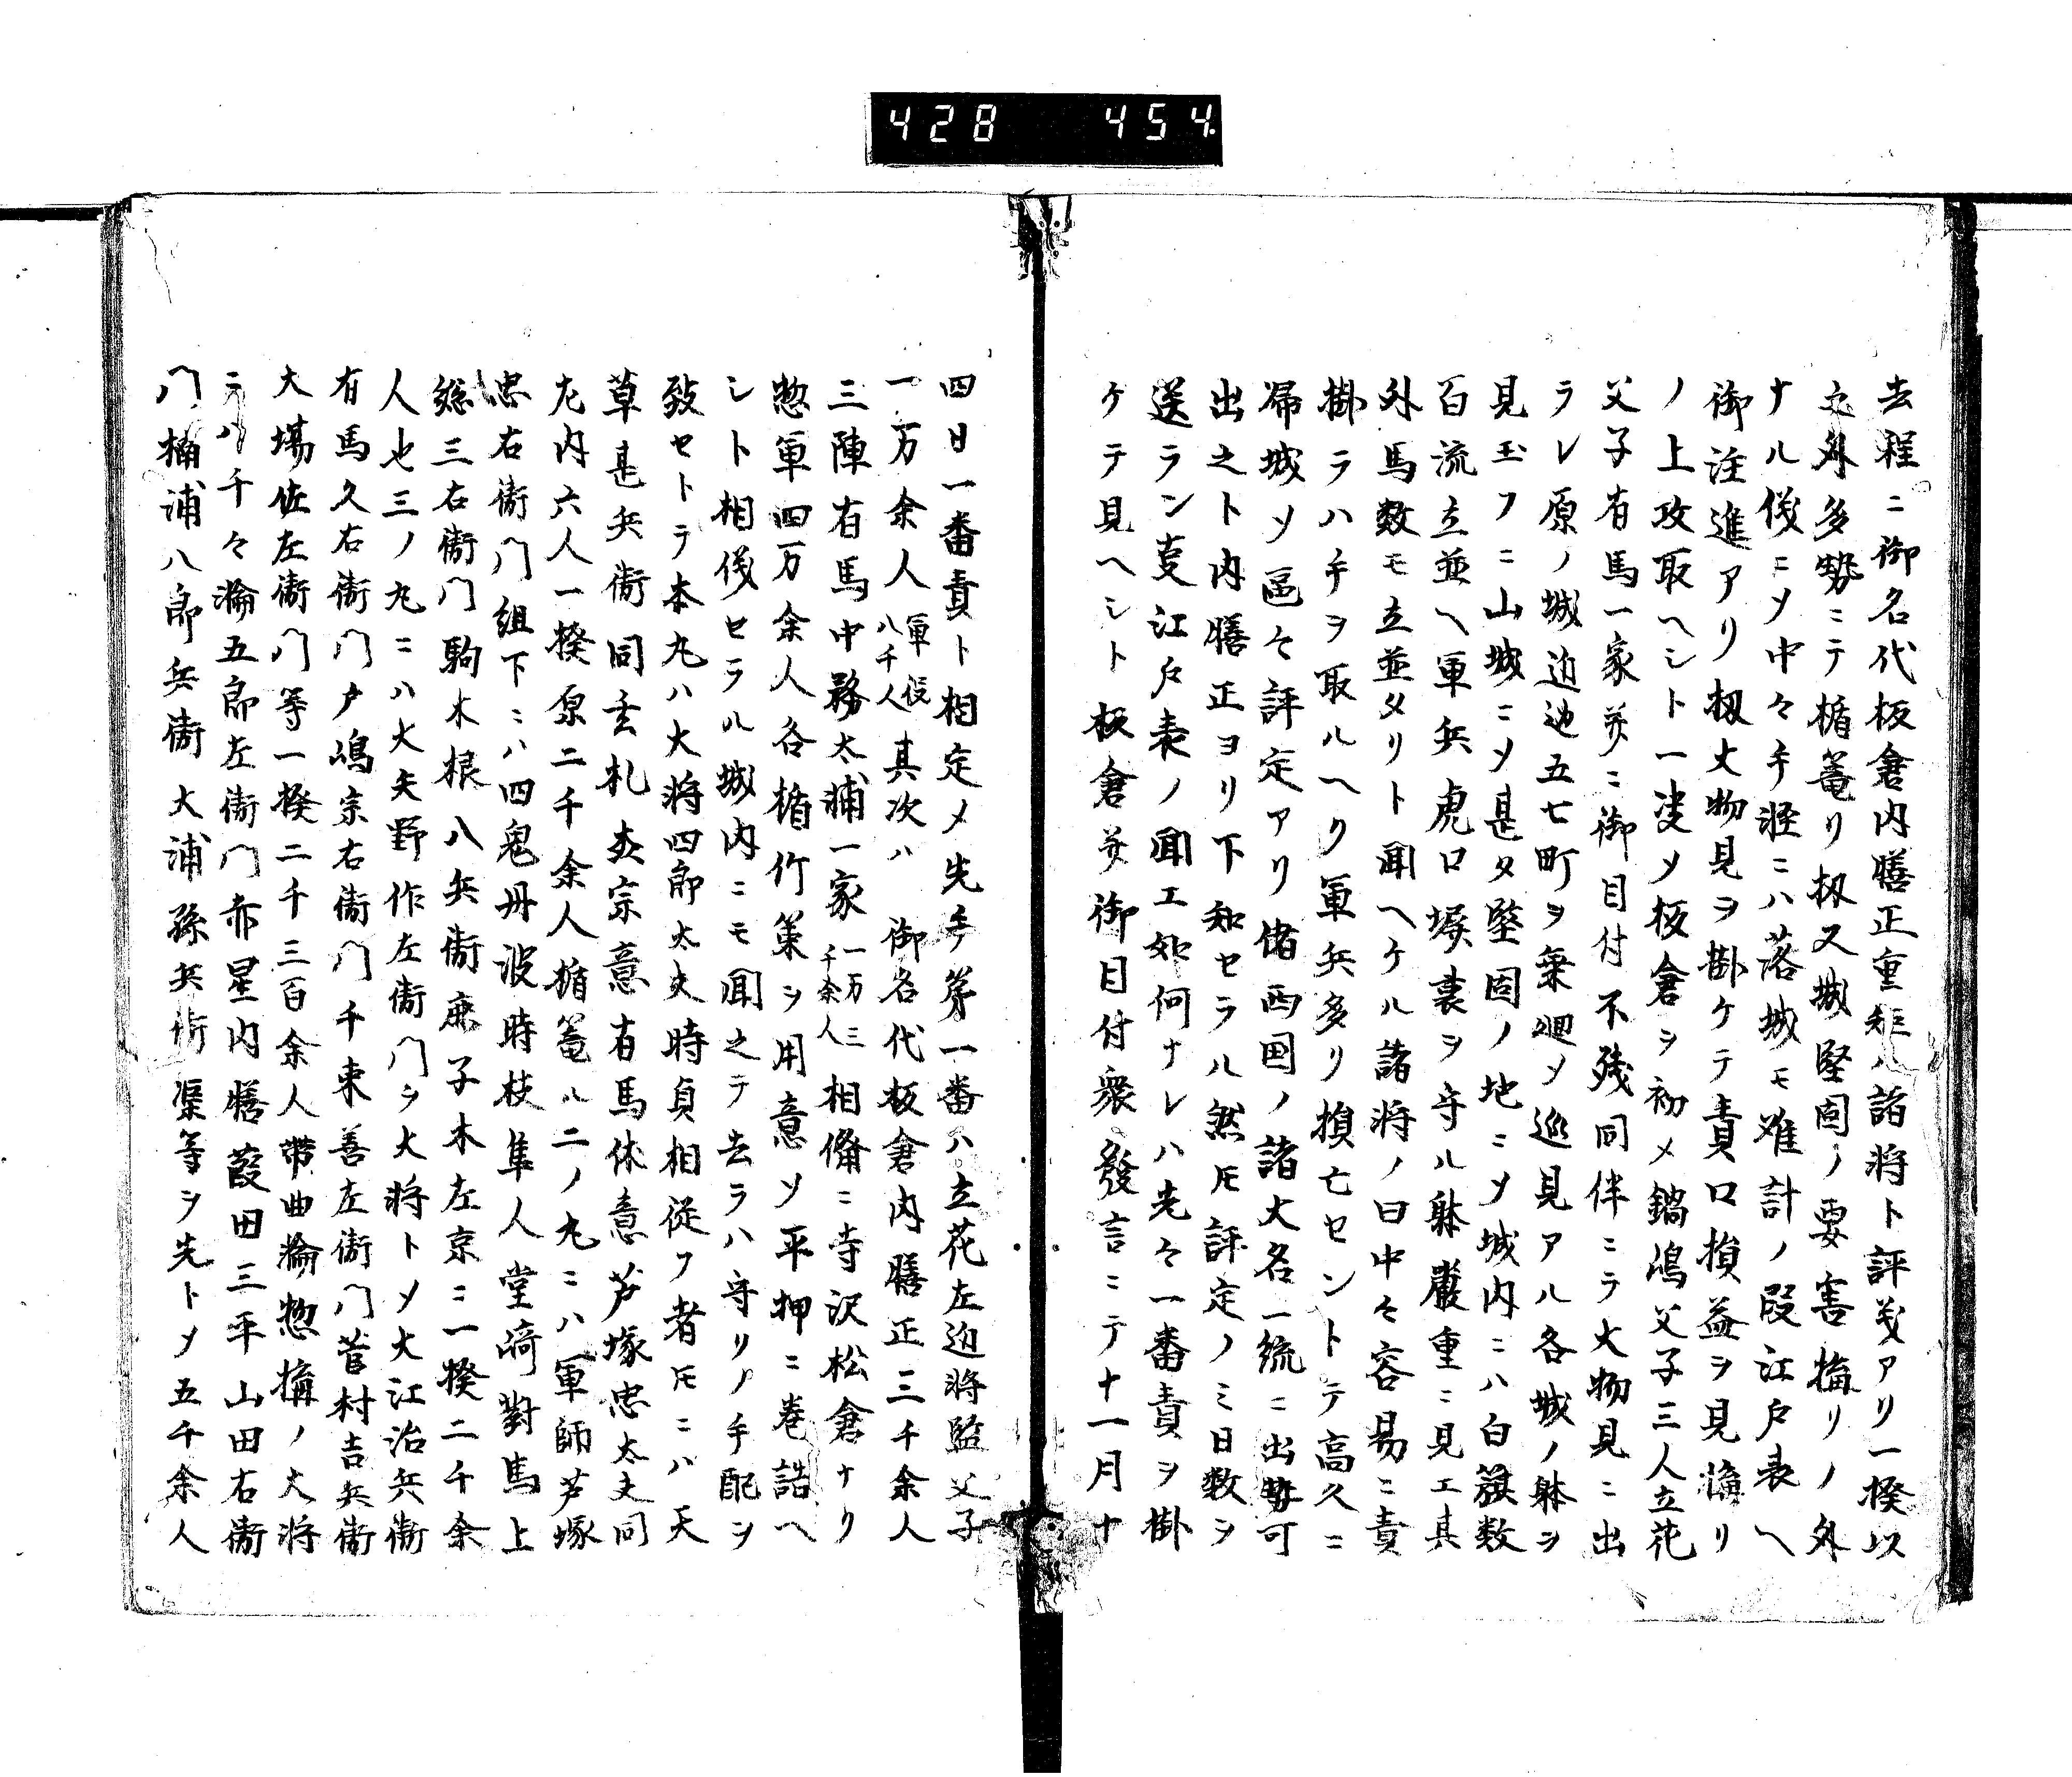 428 454
去程ニ御名代板倉内膳正重矩ハ諸将ト評義アリ一揆以
之外多勢ニテ楯篭リ扨又城堅固ノ要害構リノ外
ナル儀ニソ中々手軽ニハ落城モ難計ノ段江戸表ヘ
御注進アリ扨大物見ヲ掛ケテ責口損益ヲ見積リ
ノ上攻取ヘシト一決メ板倉ヲ初メ鍋嶋父子三人立花
父子有馬一家并ニ御目付不残同伴ニテ大物見ニ出
ラレ原ノ城近辺五七町ヲ乗廻メ巡見アル各城ノ躰ヲ
見玉フニ山城ニソ是タ堅固ノ地ニソ城内ニハ白籏数
百流立並ヘ軍兵虎口塀裏ヲ守ル躰嚴重ニ見エ其
外馬数モ立並タリト聞ヘケル諸将ノ曰中々容易ニ責
掛ラハ手ヲ取ルヘク軍兵多リ損亡セントテ高久ニ
帰城ソ區々評定アリ偖西国ノ諸大名一統ニ出勢可
出之ト内膳正ヨリ下知セラル然モ評定ノミ日数ヲ
送ラン事江戸表ノ聞エ如何ナレハ先々一番責ヲ掛
ケテ見ヘシト板倉并御目付衆發言ニテ十一月十
四日一番責ト相定メ先手第一番ハ立花左近将監父子
一万余人軍役八千人其次ハ御名代板倉内膳正三千余人
三陣有馬中務太輔一家一万三千余人相備ニ寺沢松倉ナリ
惣軍四万余人各楯竹束ヲ用意ソ平押ニ巻詰ヘ
シト相儀セラル城内ニモ聞之テ去ラハ守リノ手配ヲ
致セトテ本丸ハ大将四郎太夫時貞相従フ者モニハ天
草甚兵衛同玄札森宗意有馬休意芦塚忠太夫同
左内六人一揆原二千余人楯篭ル二ノ丸ニハ軍師芦塚
忠右衛門組下ニハ四鬼丹波時枝隼人堂崎對馬上
総三右衛門駒木根八兵衛鹿子木左京ニ一揆二千余
人也三ノ丸ニハ大矢野作左衛門ヲ大将トソ大江治兵衛
有馬久右衛門戸嶋宗右衛門千束善左衛門菅村吉兵衛
大場佐左衛門等一揆二千三百余人帯曲輪惣構ノ大将
ニハ千々輪五郎左衛門赤星内膳葭田三平山田右衛
門楠浦八郎兵衛大浦孫兵衛渠等ヲ先トメ五千余人